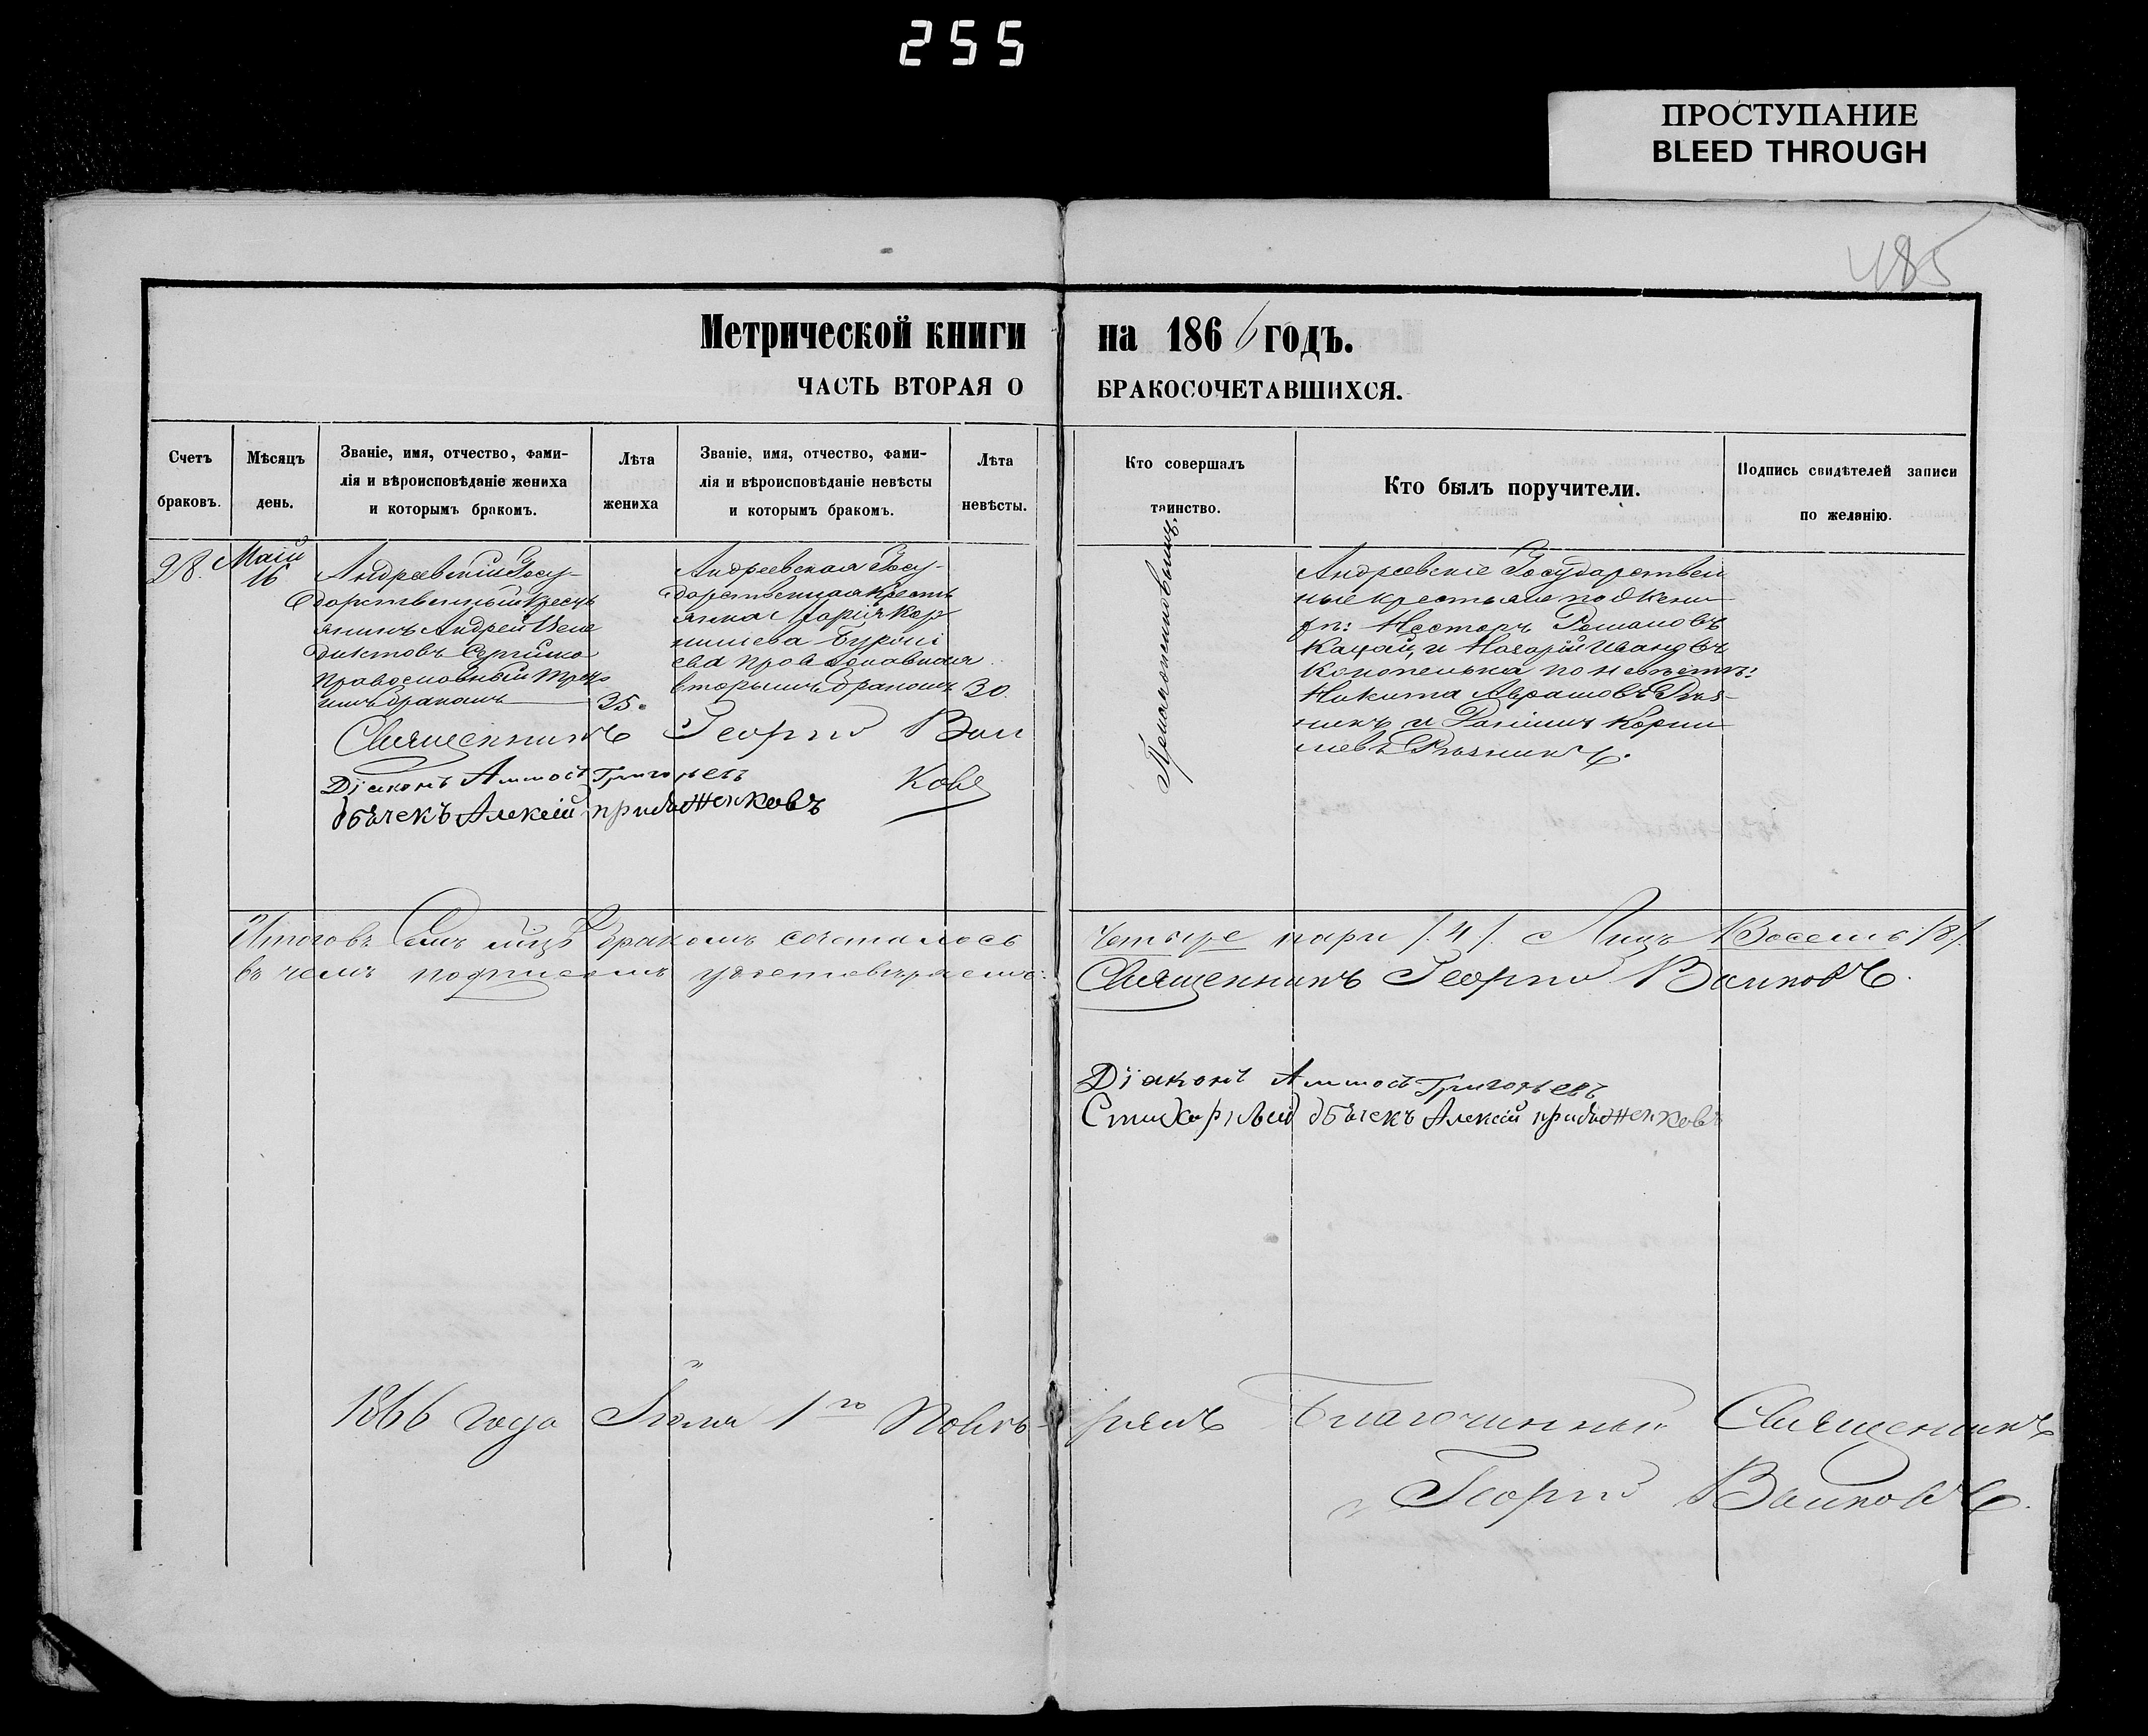 255
ПРОСТУПАНИЕ
BLEED THROUGH
485
Метрической книги на 1866 годъ.
ЧАСТЬ ВТОРАЯ О БРАКОСОЧЕТАВШИХСЯ.
Счетъ браковъ.
Мѣсяцъ день.
Званіе, имя, отчество, фами-
лія и вѣроисповѣданіе жениха
и которымъ бракомъ.
Лѣта жениха
Званіе, имя, отчество, фами-
лія и вѣроисповѣданіе невѣсты
и которымъ бракомъ.
Лѣта невѣсты.
Кто совершалъ
таинство.
Кто былъ поручители.
Подпись свидѣтелей записи
по желанію.
28.
Маій
16
Андреевскій Госу-
дарственный крестъ
янинъ Андрей
православный
имъ бракомъ
35.
Андреевская Госу-
дарственная крестъ
янка Марія Кор
нилева
ева православная
вторымъ бракомъ
30.
Андреевскіе Государствен
ные крестьяне по жени
хѣ: Несторъ Романовъ
Кацай, и Назарій Ивановъ
Конопелька по невѣстѣ:
Никита Аврамовъ Рѣз-
никъ и Корни
левъ Рѣзникъ.
Священникъ Георгій Вол
ковъ
Діаконъ Аммосъ Григорьевъ
дьячекъ Алексій
Итого въ бракомъ сочеталось четыре пары /4/. Лицъ Восемь /8/.
въ чемъ подписомъ удостовѣряемъ:
Священникъ Георгій Волковъ.
Діаконъ Аммосъ Григорьевъ
Стихарный дьячекъ Алексій
1866 года Іюля 1го Повѣрялъ Благочинный Священникъ
Георгій Волковъ.